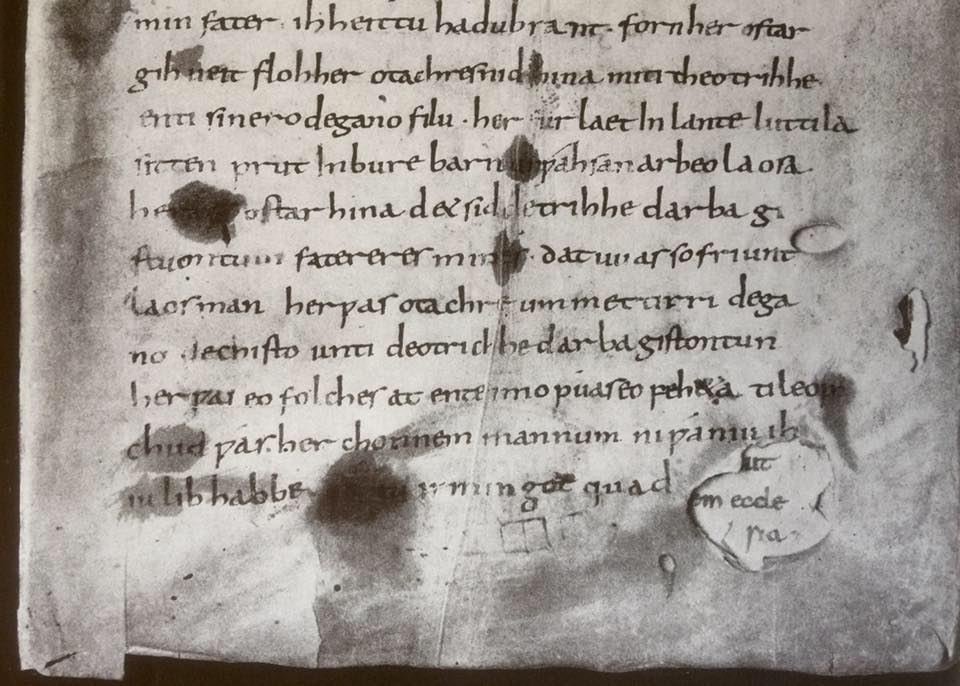 min fater · ih heittu hadubrant · forn her ostar
gihueit floh her otachres nid hina miti theotrihhe
enti sinero degano filu · her furlaet In lante luttila
sitten prut In bure barn unƿahsan arbeo laosa ·
he ostar hina d& sid detrihhe darba gi
stuontum fatereres mines · dat uuas so friunt
laos man her ƿas otachre ummettirri dega
no dechisto unti deotrichhe darba gistontun
her ƿas eo folches at ente imo ƿuas eo feh&a ti leop
chud ƿas her chonnem mannum ni ƿaniu ih
iu lib habbe irmingot quad
ut
em eccle